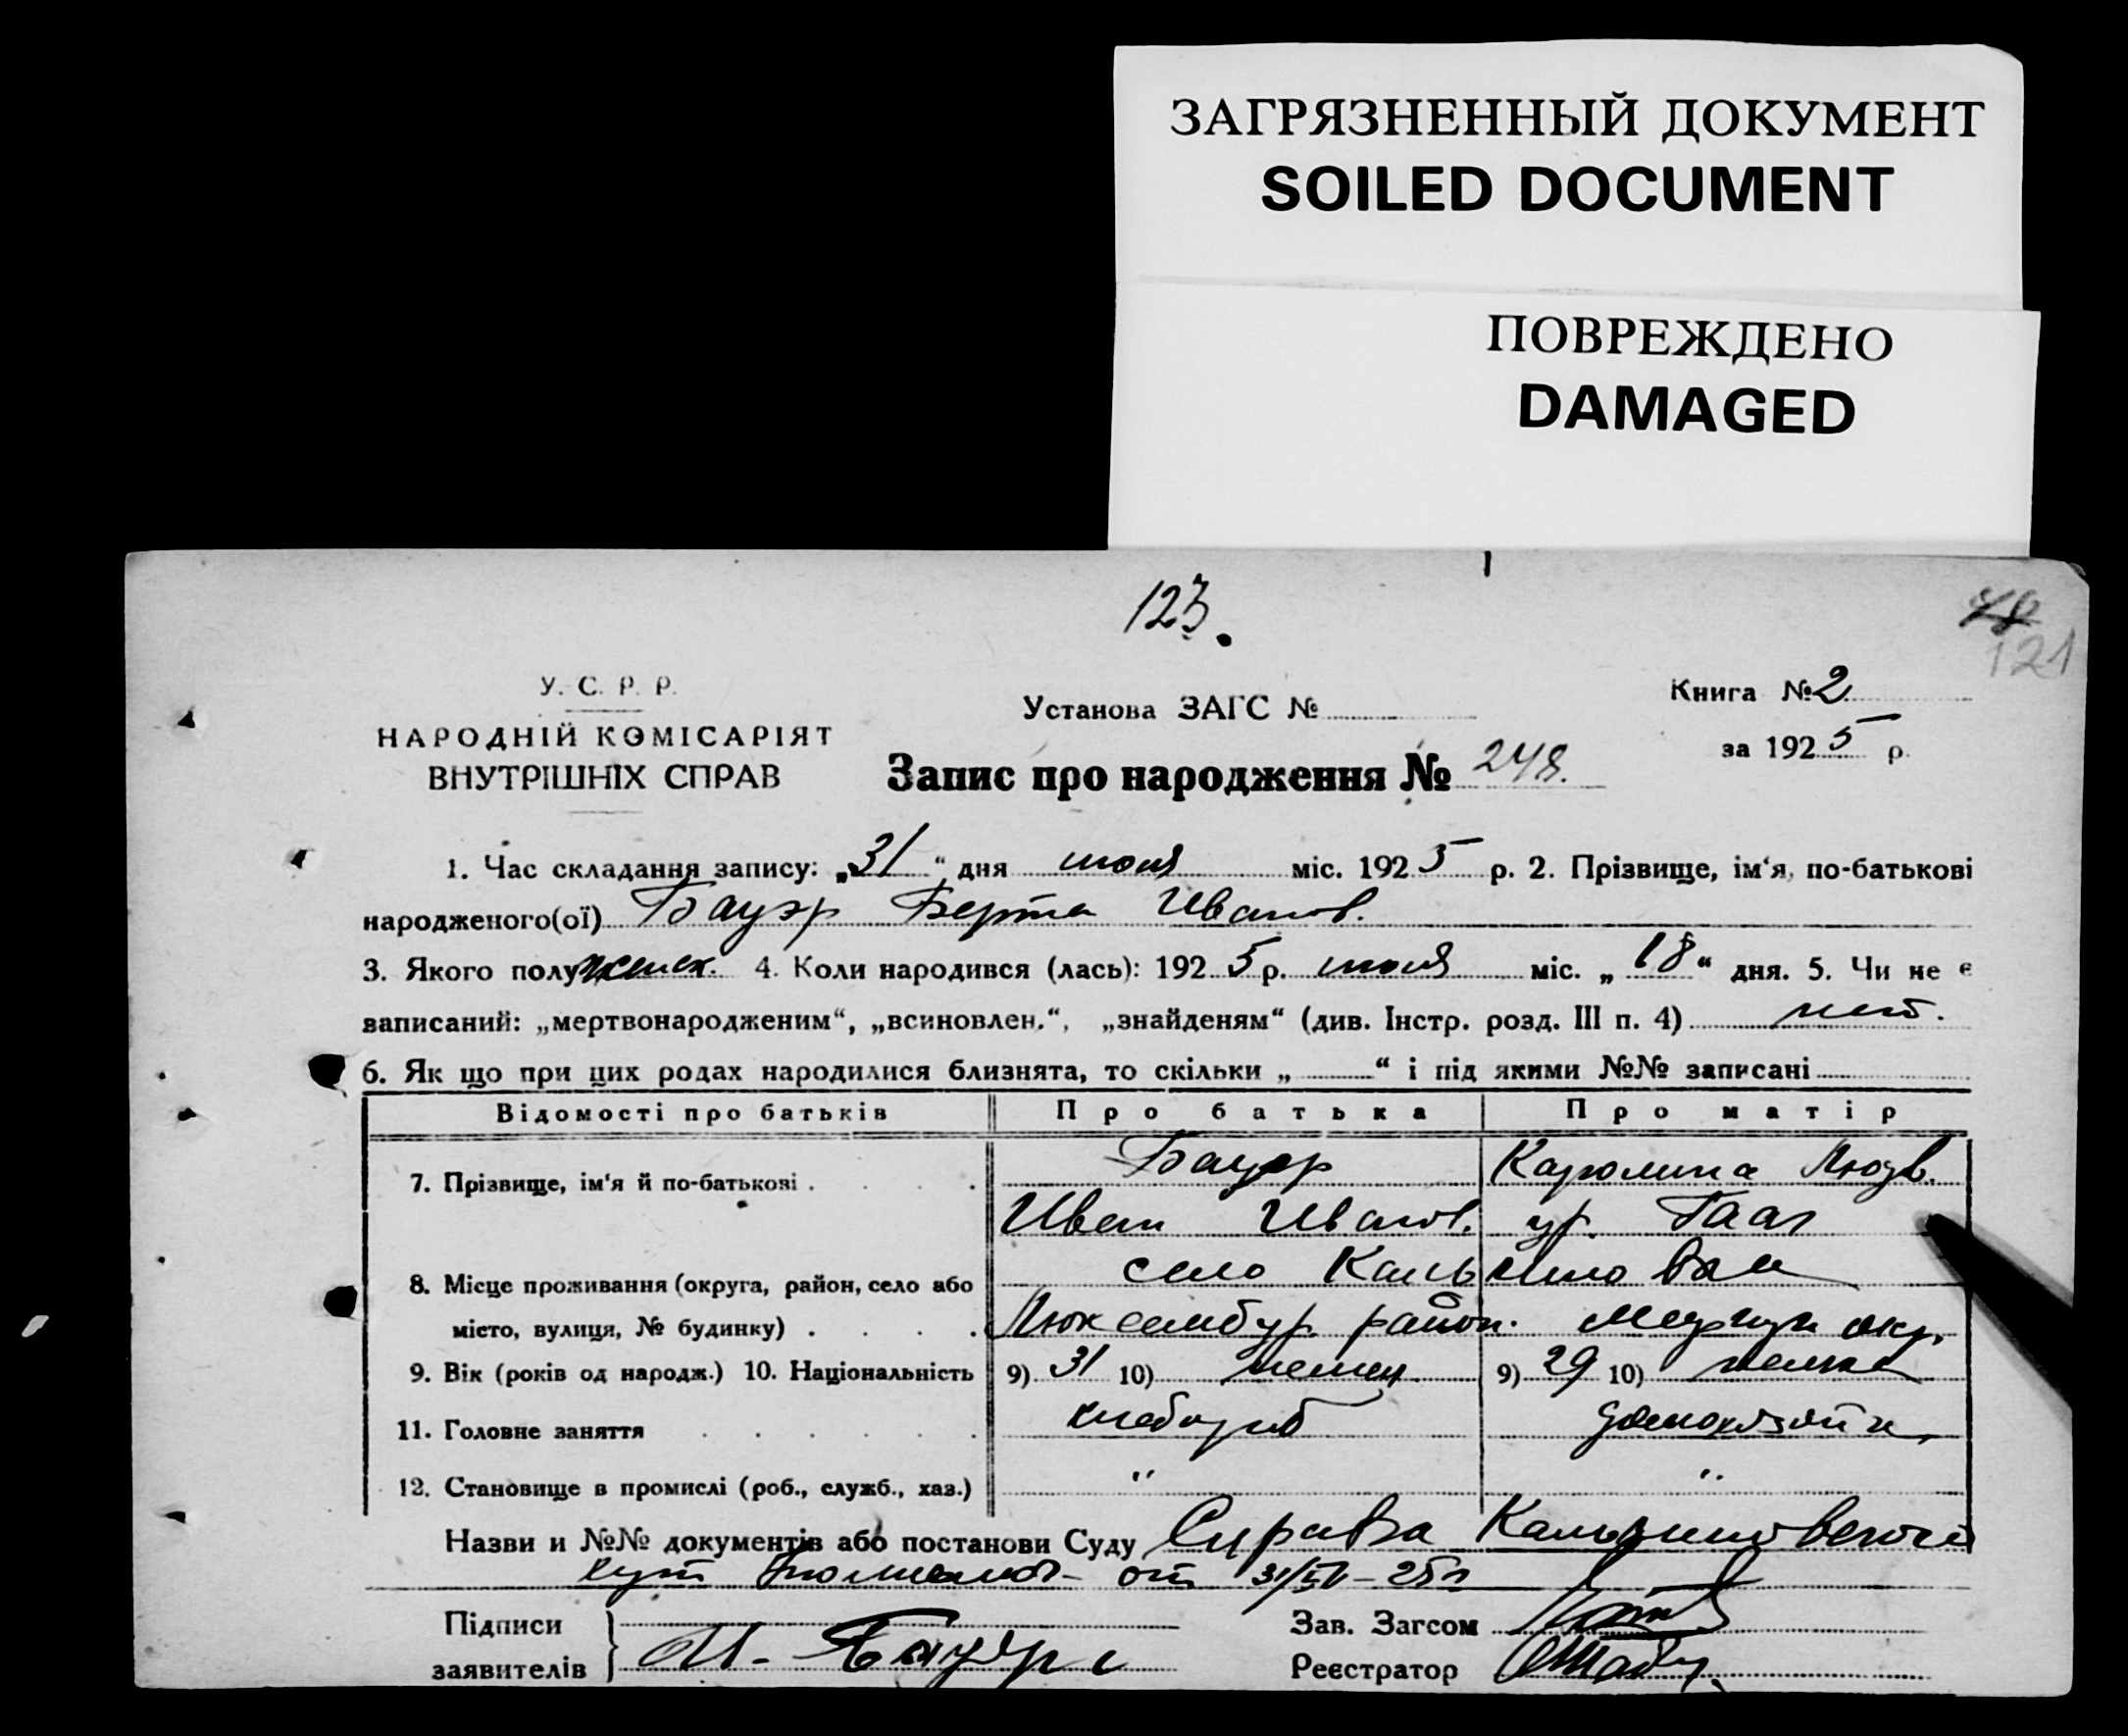 ЗАГРЯЗНЕННЫЙ ДОКУМЕНТ
SOILED DOCUMENT
ПОВРЕЖДЕНО
DAMAGED
123.
121
У. С. Р. Р.
НАРОДНІЙ КОМІСАРІЯТ
ВНУТРІШНІХ СПРАВ
Установа ЗАГС №
Книга № 2
за 1925 р.
Запис про народження № 248.
1. Час складання запису: „31“ дня июля міс. 1925 р. 2. Прізвище, ім‘я, по-батькові
народженого(ої) Бауэр Берта Иванов.
3. Якого полу женск. 4. Коли народився (лась): 1925 р. июля міс. „18“ дня. 5. Чи не є
записаний: „мертвонародженим“, „всиновлен.“, „знайденям“ (див. Інстр. розд. III п. 4) нет.
6. Як що при цих родах народилися близнята, то скільки „ “ і під якими №№ записані
Відомості про батьків Про батька Про матір
7. Прізвище, ім‘я й по-батькові Бауэр Каролина Людв.
Иван Иванов. ур. Гааг
8. Місце проживання (округа, район, село або село Кальчиновка
місто, вулиця, № будинку) Люксембур. район. окр.
9. Вік (років од народж.) 10. Національність 9) 31 10) немец 9) 29 10) немка
11. Головне заняття хлебороб домохозяйк
12. Становище в промислі (роб., служб., хаз.) " "
Назви и №№ документів або постанови Суду Справка
от 31/VII-25 г
Підписи
заявителів И. Бауэр
Зав. Загсом
Реєстратор